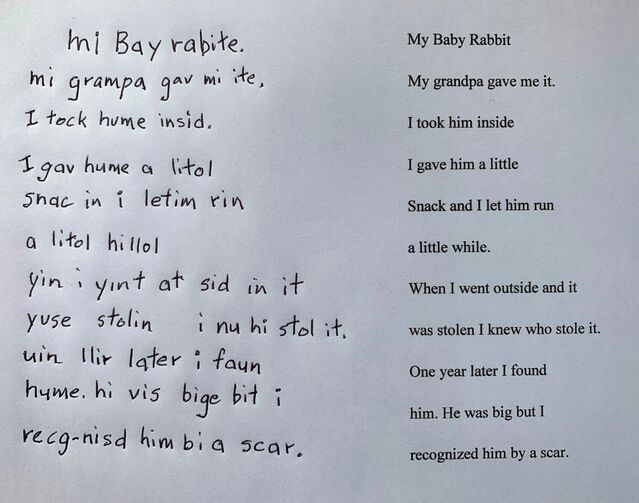 mi Bay rabite.
mi grampa gav mi ite.
I tock hume insid.
I gav hume a litol
snac in i letim rin
a litol hillol
yin i yint at sid in it
yuse stolin i nu hi stol it.
uin llir later i faun
hume. hi vis bige bit i
recg-nisd him bi a scar.
My Baby Rabbit
My grandpa gave me it.
I took him inside
I gave him a little
Snack and I let him run
a little while.
When I went outside and it
was stolen I knew who stole it.
One year later I found
him. He was big but I
recognized him by a scar.